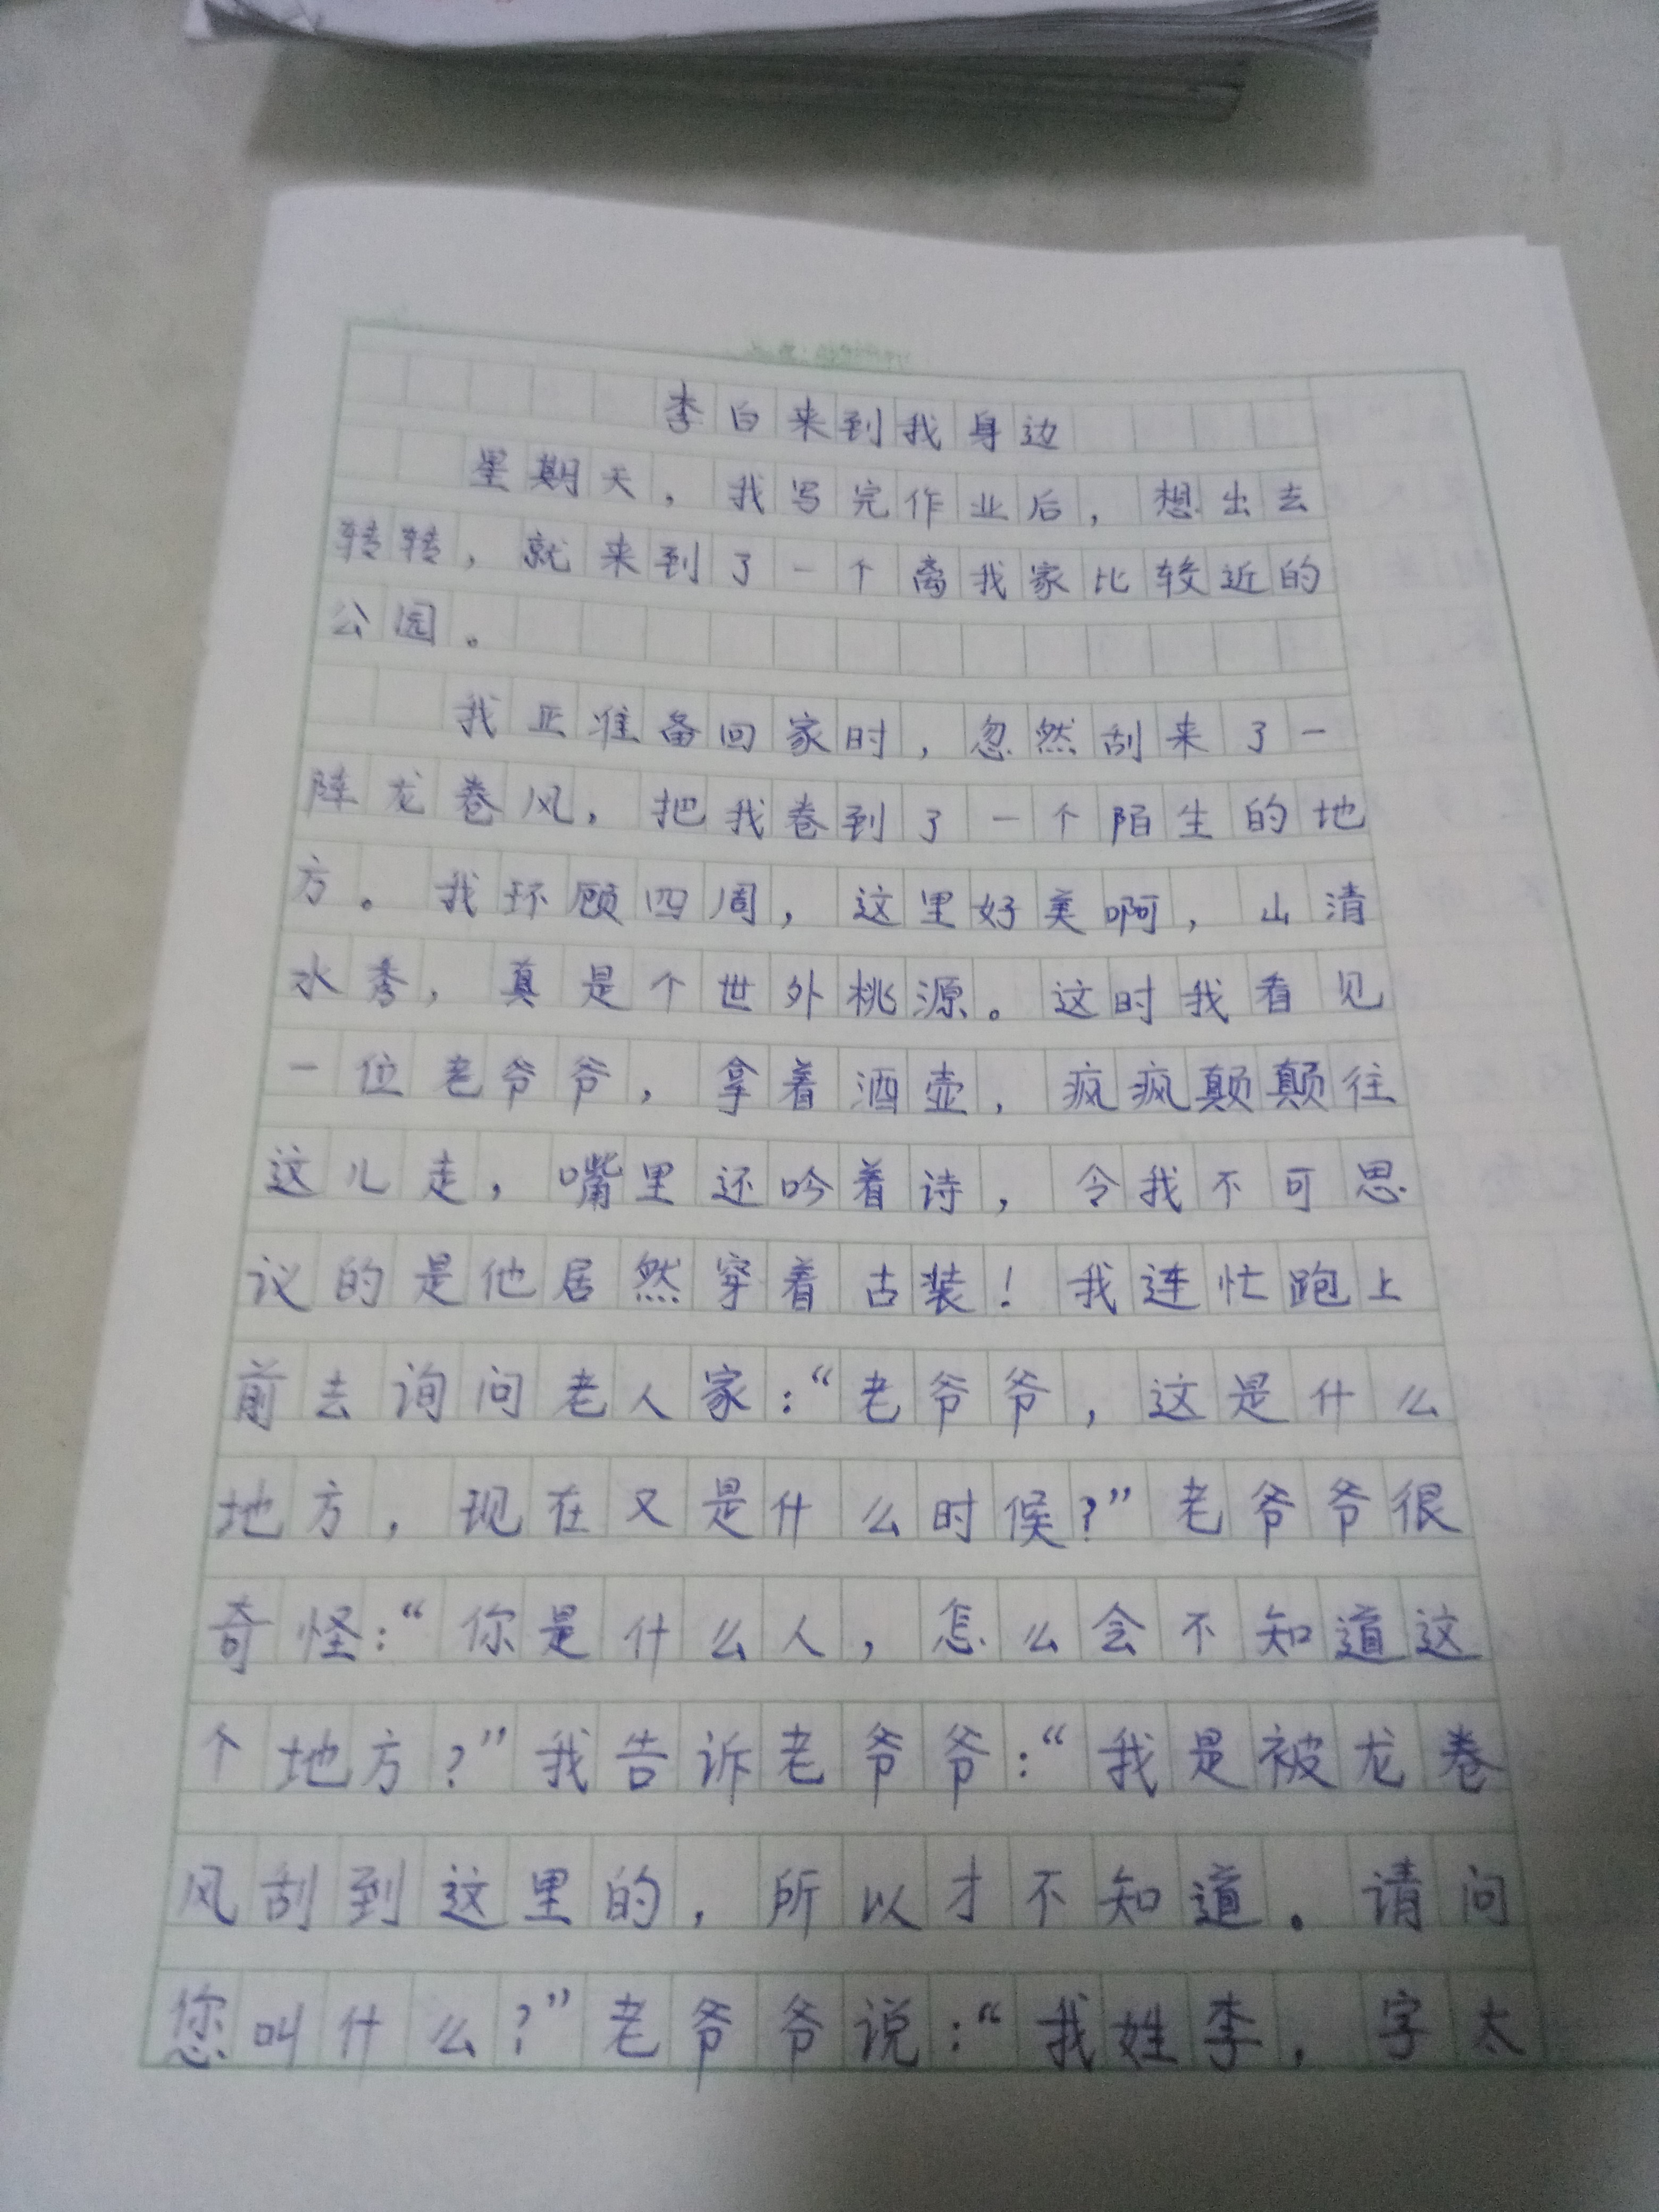 李白来到我身边
星期天，我写完作业后，想出去
转转，就来到了一个离我家比较近的
公园。
我正准备回家时，忽然刮来了一
阵龙卷风，把我卷到了一个陌生的地
方。我环顾四周，这里好美啊，山清
水秀，真是个世外桃源。这时我看见
一位老爷爷，拿着酒壶，疯疯颠颠往
这儿走，嘴里还吟着诗，令我不可思
议的是他居然穿着古装！我连忙跑上
前去询问老人家：“老爷爷，这是什么
地方，现在又是什么时候？”老爷爷很
奇怪：“你是什么人，怎么会不知道这
个地方？”我告诉老爷爷：“我是被龙卷
风刮到这里的，所以才不知道。请问
您叫什么？”老爷爷说：“我姓李，字太